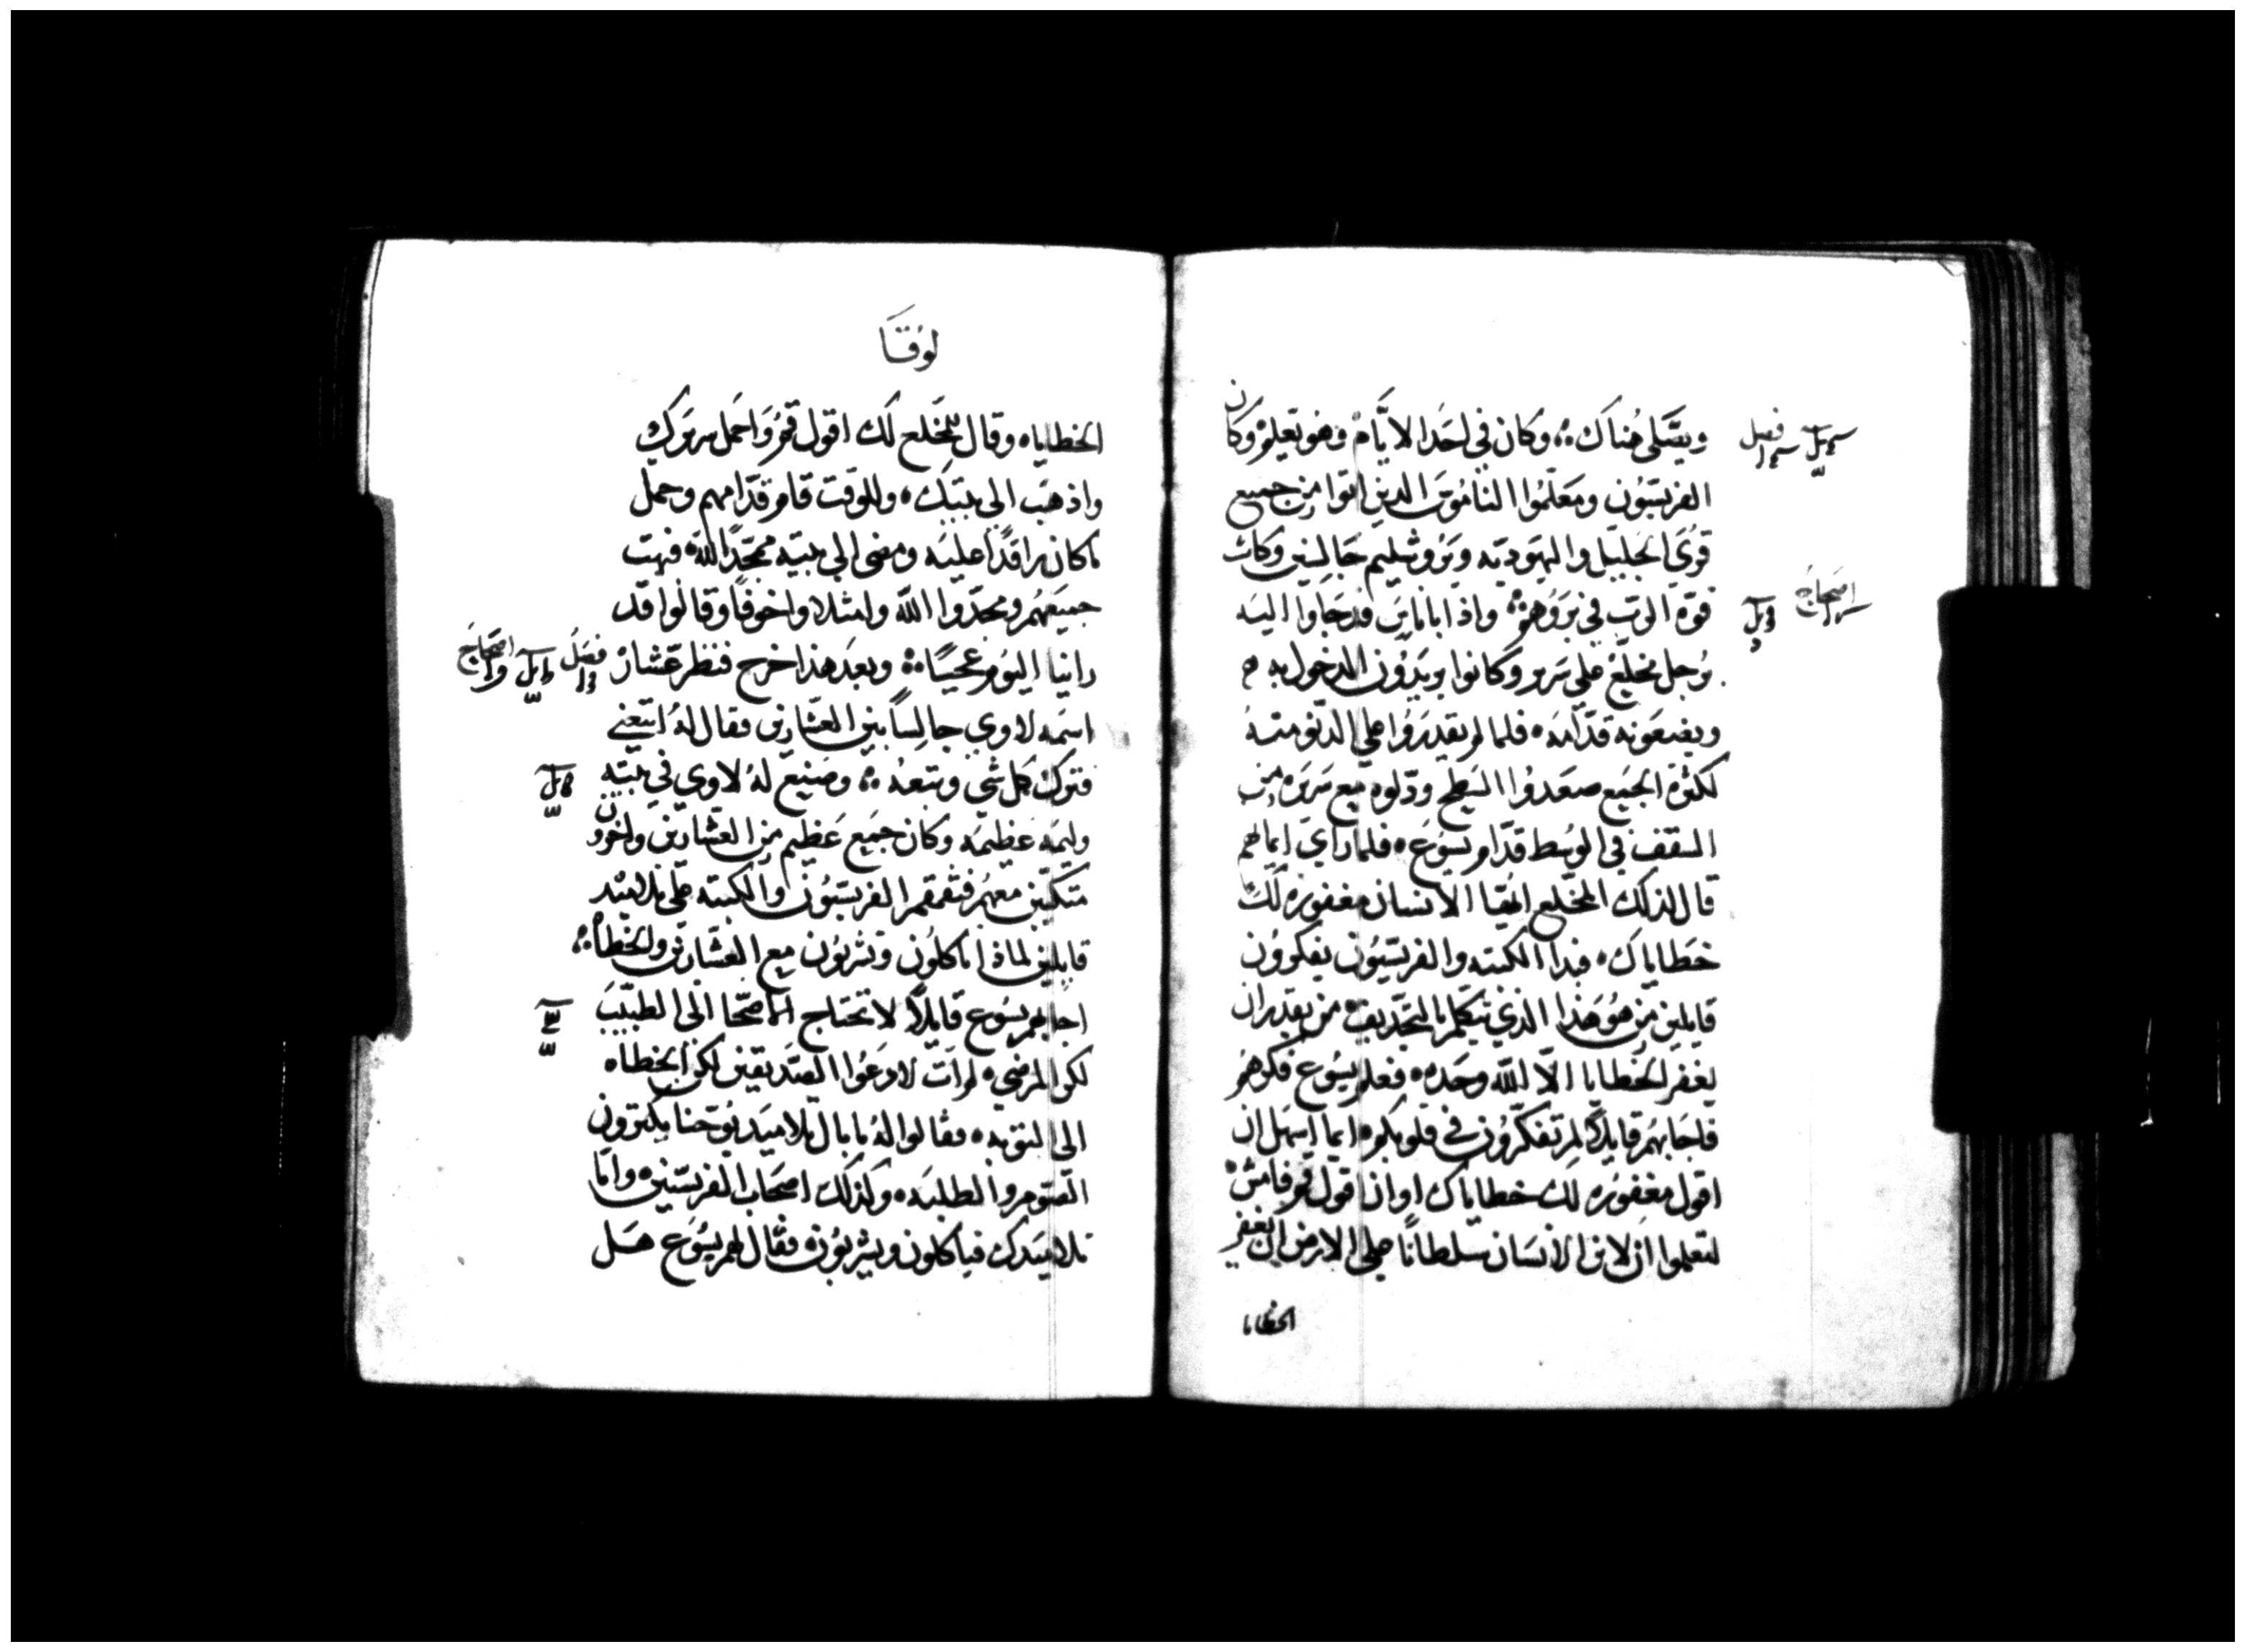 ويصلى هناك ؞ وكان في احد الايام وهو يعلم وكان
الفريسيون ومعلموا الناموس الدين اتوا من جميع
قري الجليل واليهوديه ويروشليم جالسين وكانت
قوة الرب في بروهم ؞ واذا اناس قد جاوا اليه
برجل مخلع على سرير وكانوا يريدون الدخول به
ويضعونه قدامه ، فلما لم يقدروا علي الدنو منه
لكثرة الجميع صعدوا السطح ودلوه مع سريره من
السقف في الوسط قدام يسوع ، فلما راي ايمانهم
قال لذلك المخلع ايها الانسان مغفوره لك
خطاياك ، فبدا الكتبه والفريسيون يفكرون
قايلين من هو هذا الذي يتكلم بالتجديف من يقدر ان
يغفر الخطايا الا الله وحده ، فعلم يسوع فكرهم
فاجابهم قايلا لم تفكرون في قلوبكم ايما اسهل ان
اقول مغفوره لك خطاياك او ان اقول قم فامش
لتعلموا ان لابن الانسان سلطانا على الارض ان يغفر
الخطايا
لوقا
الخطاياه وقال للمخلع لك اقول قم واحمل سريرك
واذهب الي بيتك ، وللوقت قام قدامهم وحمل
ما كان راقدا عليه ومضى الي بيته ممجدا الله ، فبهت
جميعهم ومجدوا الله وامتلاوا خوفا وقالوا قد
راينا اليوم عجيبا ؞ وبعد هذا خرج فنظر عشار فصل
اسمه لاوي جالسا بين العشارين فقال له اتبعني
فترك كل شي وتبعه ؞ وصنع له لاوي في بيته
وليمه عظيمه وكان جميع عظيم من العشارين واخرون
متكيين معهم فتقمقم الفريسيون والكتبه على تلاميده
قايلين لماذا تاكلون وتشربون مع العشارين والخطاه ؞
اجابهم يسوع قايلا لا تحتاج الاصحا الى الطبيب
لكن المرضي ، لم ات لادعوا الصديقين لكن الخطاه
الى التوبه ، فقالوا له ما بال تلاميد يوحنا يكترون
الصوم والطلبه ، وكذلك اصحاب الفريسين ، واما
تلاميدك فياكلون ويشربون ، فقال لهم يسوع هل